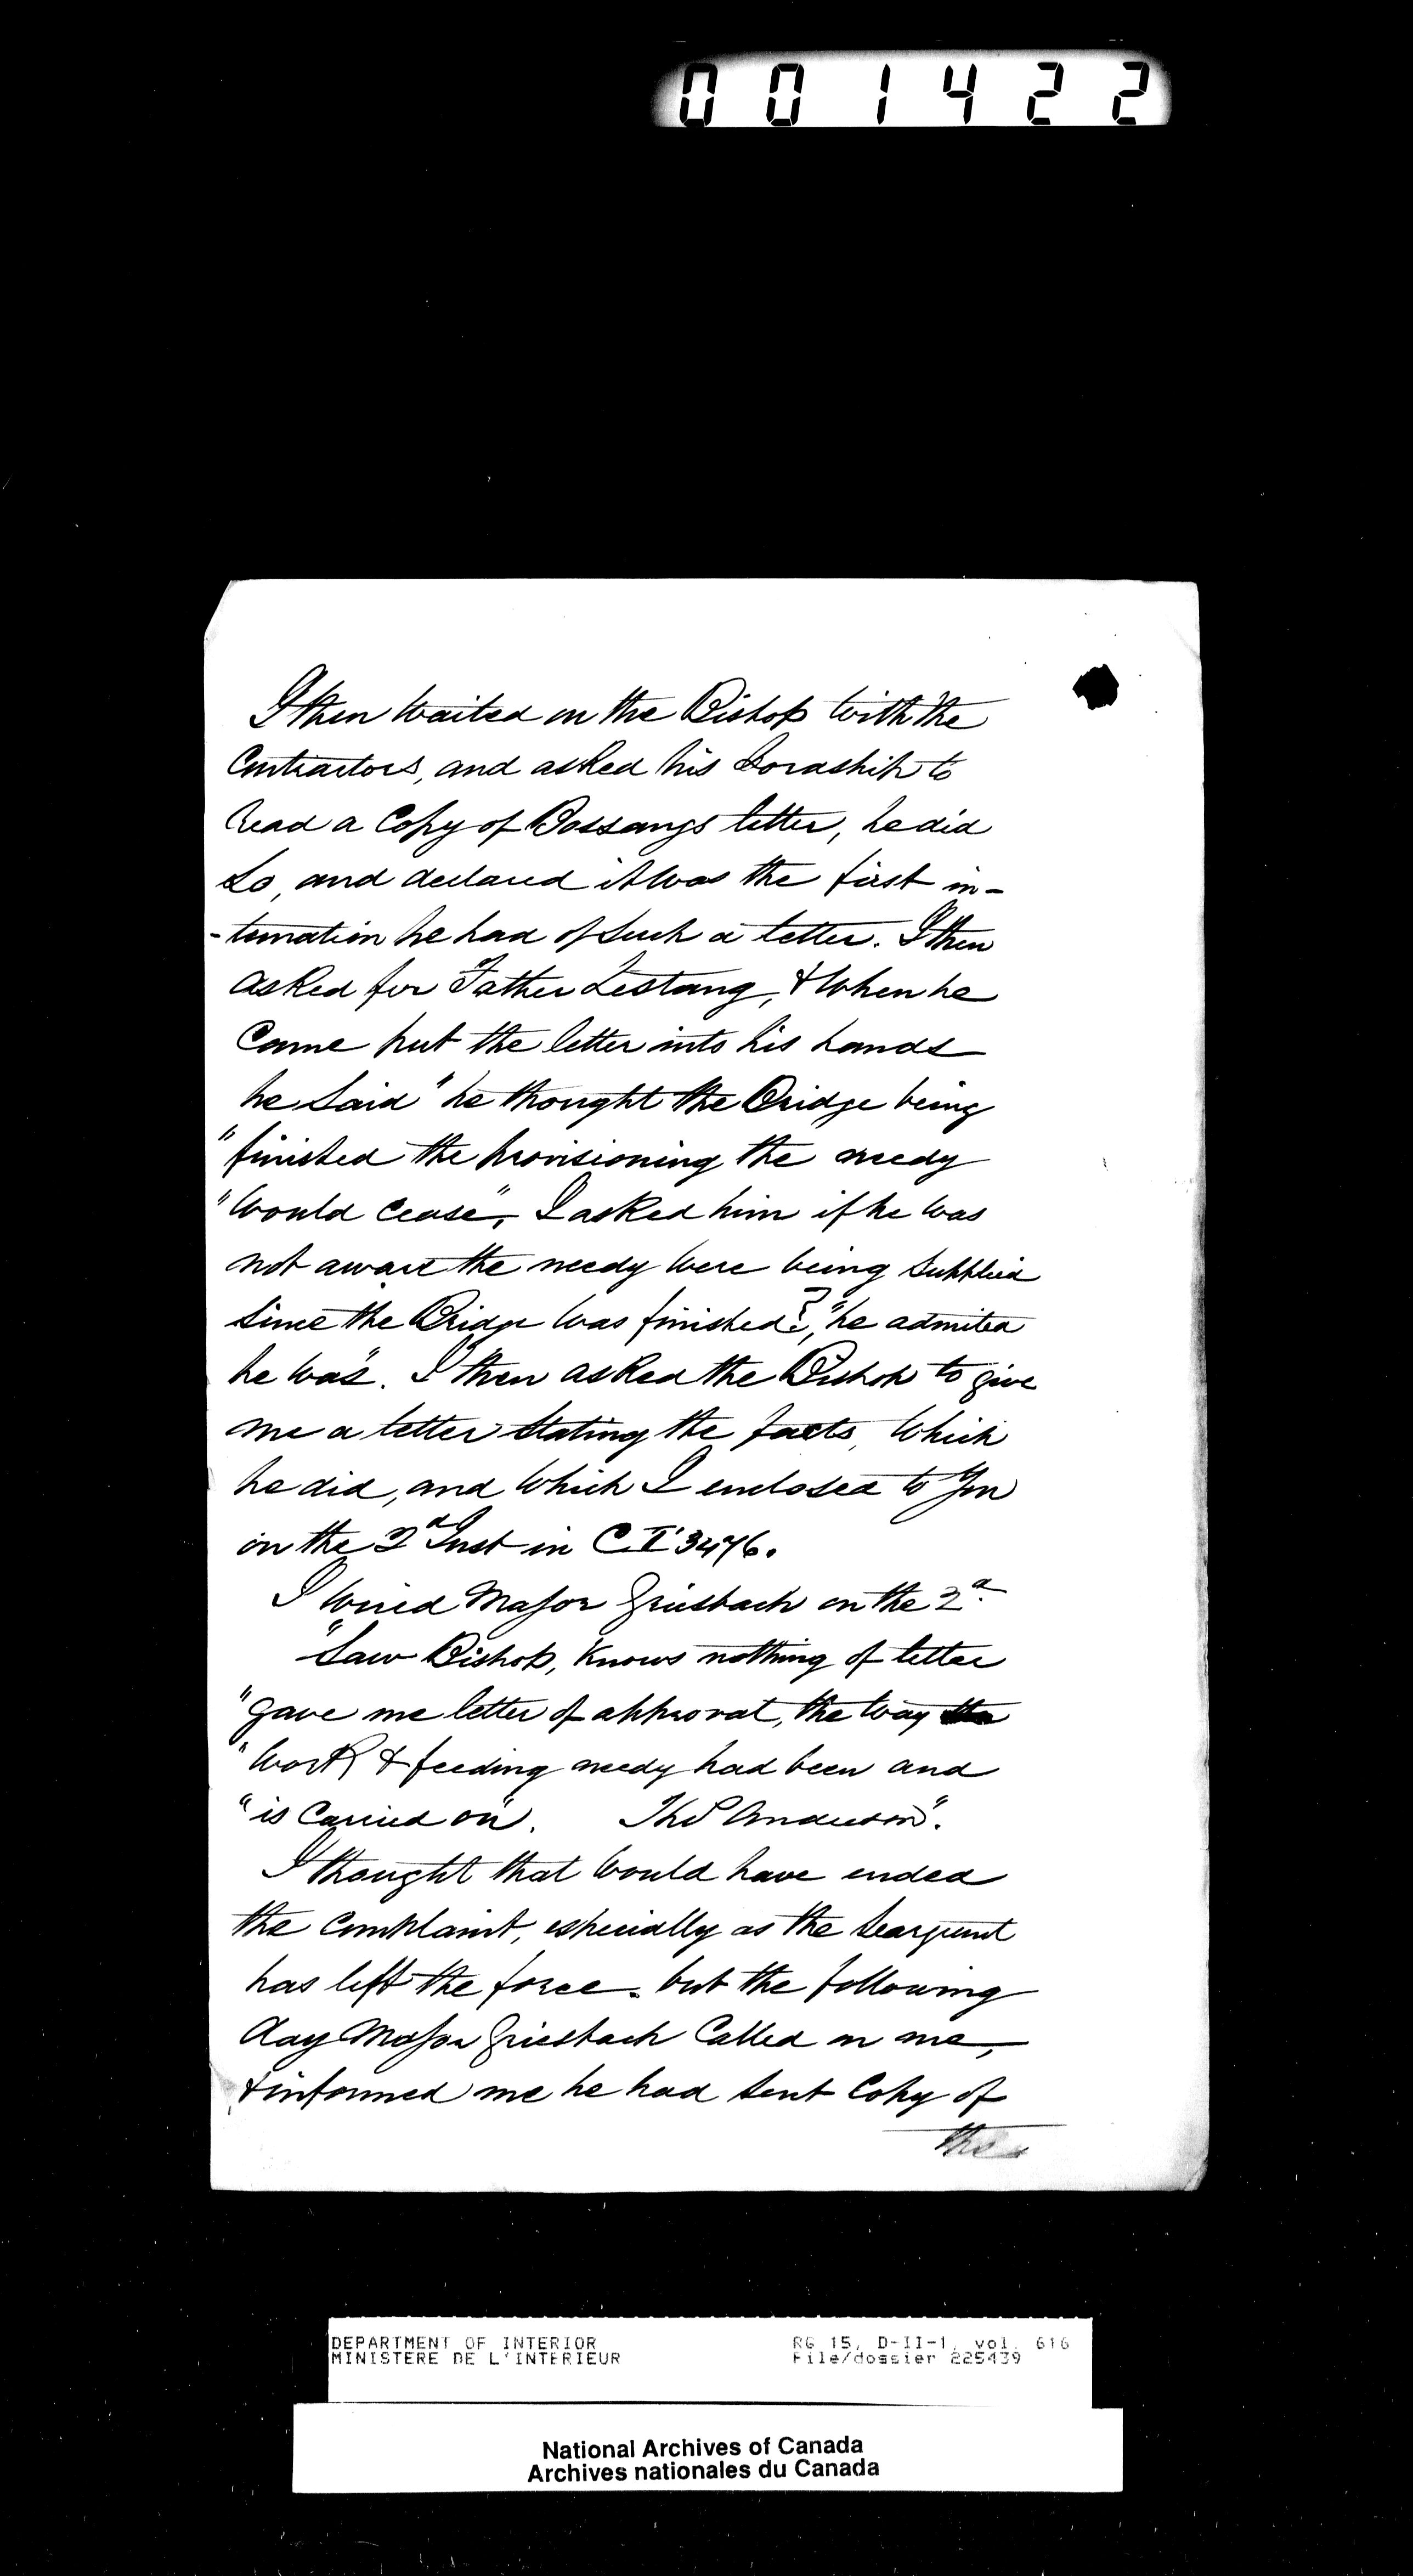 001422
I then waited on the Bishop with the
Contractors, and asked his Lordship to
read a Copy of Bossangs letter, he did
so, and declared it was the first in-
-timation he had of such a letter. I then
asked for Father Lestang, & when he
came put the letter into his hands
he said "he thought the Bridge being
"finished the provisioning the needy
"would cease", I asked him if he was
not aware the needy were being supplied
since the Bridge was finished?, "he admited
he was". I then asked the Bishop to give
me a letter stating the facts, which
he did, and which I enclosed to you
on the 2d Inst in C.I 3476.
I wired Major Griesbach on the 2d.
"Saw Bishop, Knows nothing of letter
"gave me letter of approval, the way
"work & feeding needy had been and
"is carried on". Thos Anderson".
I thought that would have ended
the complaint, especially as the Seargeant
has left the force. but the following
day Major Griesbach Called on me,
& informed me he had sent Copy of
the
DEPARTMENT OF INTERIOR RG 15, D-II-1, vol. 616
MINISTERE DE L'INTERIEUR File/dossier 225439
National Archives of Canada
Archives nationales du Canada